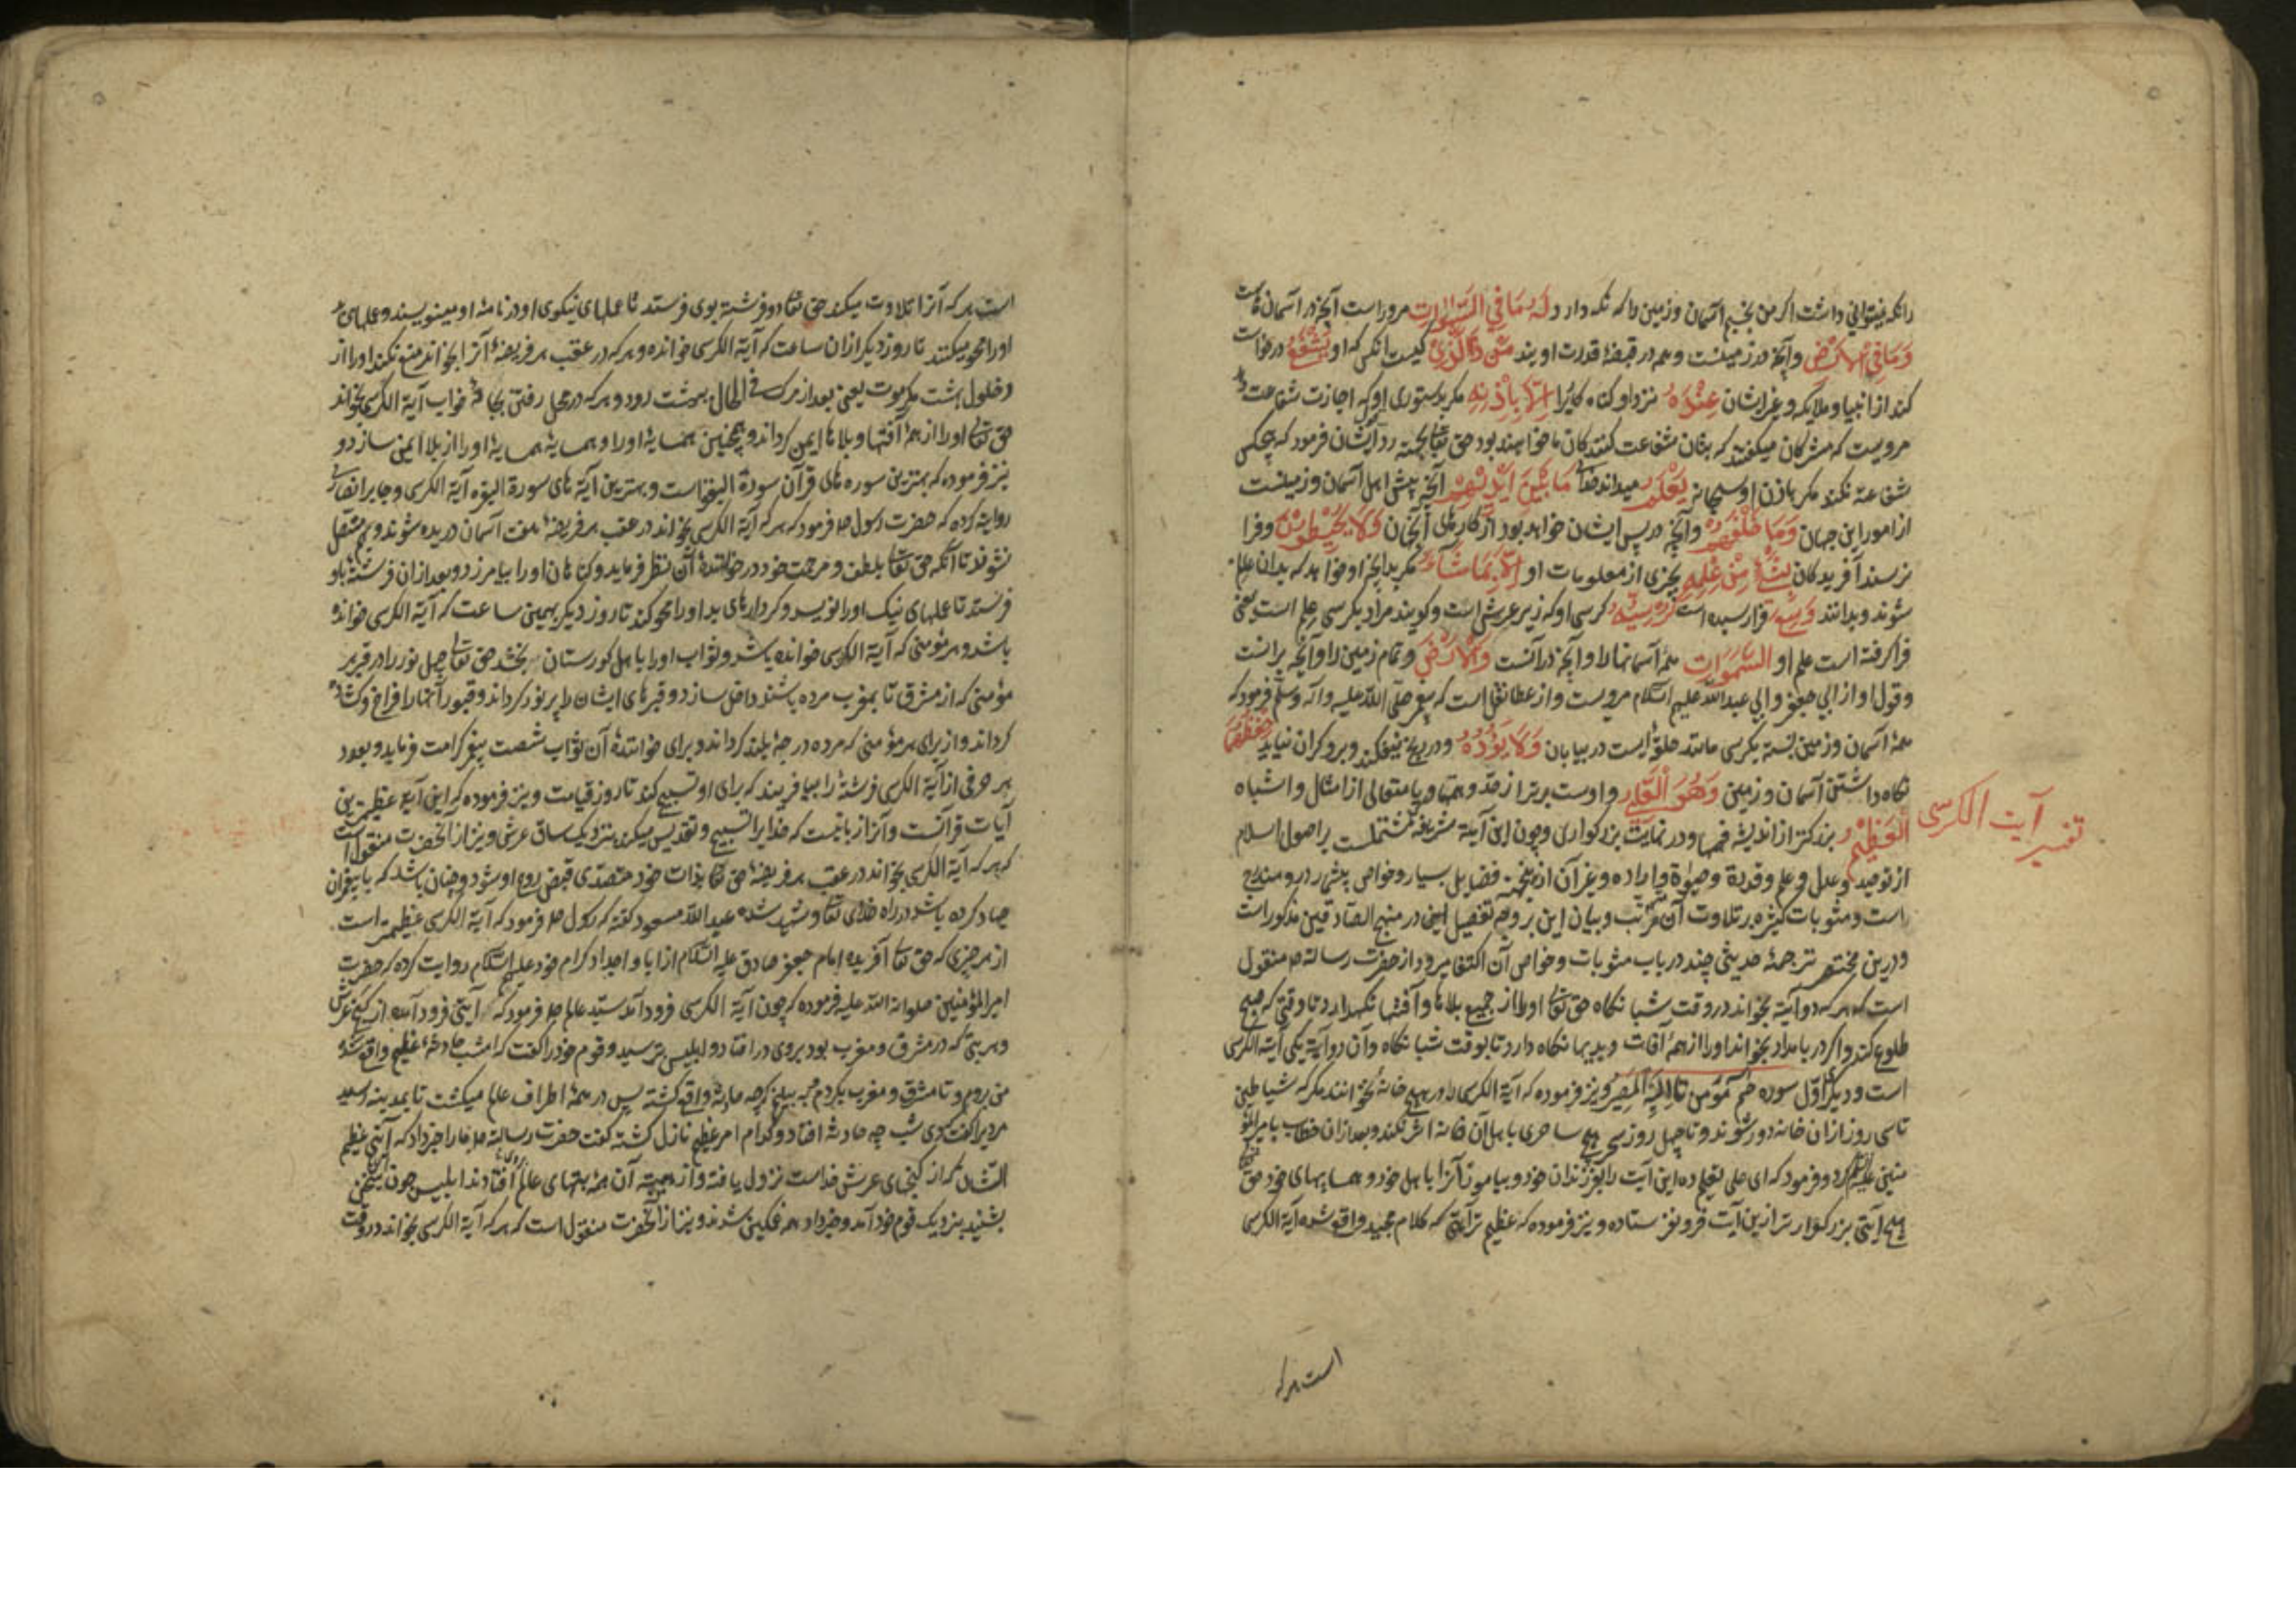 را نکه نمیتوانی داشت اگر من بخسبم آسمان و زمین را که نکه دارد لَهُ مَا فِي السَّمٰوَاتِ مر اوراست آنچه در آسمان هاست
وَمَا فِي الْاَرْضِ و آنچه در زمینست و همه در قبضهٔ قدرت اویند مَنْ ذَا الَّذِيْ کیست آنکس که او يَشْفَعُ درخواست
کند از انبیا و ملایکه و غیر ایشان عِنْدَهُ نزد او کناه کاریرا اِلَّا بِاِذْنِهِ مکر بدستوری او که اجازت شفاعت دهد
مرویست که مشرکان میکفتند که بتان شفاعت کنندکان ما خواهند بود حق تعالی بجهته رد ایشان فرمود که هیچکس
شفاعة نکند مکر باذن او سبحانه يَعْلَمُ میداند خدا مَا بَيْنَ اَيْدِيْهِمْ آنچه پیش اهل آسمان و زمینست
از امور این جهان وَمَا خَلْفَهُمْ و آنچه در پس ایشان خواهد بود از کارهای آنجهان وَلَا يُحِيْطُوْنَ و فرا
نرسند آفریدکان بِشَيْءٍ مِنْ عِلْمِهِ بچیزی از معلومات او اِلَّا بِمَا شَاءَ مکر بدانچه او خواهد که بدان عالم
شوند و بدانند وَسِعَ فرا رسیده است كُرْسِيُّهُ کرسی او که زیر عرش است و کویند مراد بکرسی علم است یعنی
فرا کرفته است علم او السَّمٰوَاتِ همهٔ آسمانها را و آنچه در آنست وَالْاَرْضَ و تمام زمین را و آنچه برانست
و قول او از ابی جعفر و ابی عبدالله علیهم السلام مرویست و از عطا نقل است که پیغمبر صلی الله علیه و آله و سلم فرمود که
همهٔ آسمان و زمین نسبة بکرسی مانند حلقه ایست در بیابان وَلَا يَؤُدُهُ و در رنج نیفکند و برو کران نیاید حِفْظُهُمَا
نکاه داشتن آسمان و زمین وَهُوَ الْعَلِيُّ و اوست برتر از ضد و همتا و یا متعالی از امثال و اشباه
الْعَظِيْمُ بزرکتر از اندیشه فهمها و در نهایت بزرکواری و چون این آیة شریفه مشتملست بر اصول اسلام
تفسیر آیت الکرسی
از توحید و عدل و علم و قدرة و حیوة و اراده و غیر آن ازینجهته فضایل بسیار و خواص بیشمار درو مندرج
است و مثوبات کثیره بر تلاوت آن مترتب و بیان این بر وجه تفصیل در منهج الصادقین مذکور است
و درین مختصر ترجمهٔ حدیثی چند در باب مثوبات و خواص آن اکتفا میرود از حضرت رسالة ص منقول
است که هر که دو آیة بخواند در وقت شبانکاه حق تعالی او را از جمیع بلاها و آفتها نکهدارد تا وقتی که صبح
طلوع کند و اکر در بامداد بخواند او را از همهٔ آفات و بدیها نکاه دارد تا بوقت شبانکاه و آن دو آیة یکی آیة الکرسی
است و دیکر اوّل سوره حم مؤمن تا اِلَيْهِ الْمَصِيْرُ و نیز فرموده که آیة الکرسی را در هیچ خانه نخوانند مکر که شیاطین
تا سی روز از ان خانه دور شوند و تا چهل روز سحر هیچ ساحری باهل آن خانه اثر نکند و بعد ازان خطاب بامیر المؤ
منین علیه السلام کرد و فرمود که ای علی تعلیم ده این آیت را بفرزندان خود و بیاموز آنرا باهل خود و همسایهای خود حق تعالی
هیچ آیتی بزرکوارتر ازین آیت فرو نفرستاده و نیز فرموده که عظیم تر آیتی که کلام مجید واقع شده آیة الکرسی
است هر که
است هر که آنرا تلاوت میکند حق تعالی دو فرشته بوی فرستد تا عملهای نیکوی او در نامهٔ او مینویسند و عملهای بد
اورا محو میکنند تا روز دیکر ازان ساعت که آیة الکرسی خوانده و هر که در عقب هر فریضهٔ آنرا بخواند منع نکند او را از
دخول بهشت مکر موت یعنی بعد از مرک فی الحال ببهشت رود و هر که در محل رفتن بجامهٔ خواب آیة الکرسی بخواند
حق تعالی او را از همهٔ آفتها و بلاها ایمن کرداند و همچنین همسایهٔ او را و همسایهٔ همسایهٔ او را از بلا ایمن سازد و
نیز فرموده که بهترین سوره های قرآن سورة البقره است و بهترین آیة های سورة البقره آیة الکرسی و جابر انصاری
روایة کرده که حضرت رسول ص فرمود که هر که آیة الکرسی بخواند در عقب هر فریضهٔ هفت آسمان دریده شوند و بهم متصل
نشوند تا آنکه حق تعالی بلطف و مرحمت خود در خوانندهٔ آن نظر فرماید و کناهان او را بیامرزد و بعد ازان فرشتهٔ باو
فرستد تا عملهای نیک او را نویسد و کردارهای بد او را محو کند تا روز دیکر بهمین ساعت که آیة الکرسی خوانده
باشد و هر مؤمنی که آیة الکرسی خوانده باشد و ثواب او را باهل کورستان بخشد حق تعالی چهل نور را در قبر هر
مؤمنی که از مشرق تا بمغرب مرده باشند داخل سازد و قبرهای ایشان را پر نور کرداند و قبور آنها را فراخ و کشاده
کرداند و از برای هر مؤمنی که مرده درجهٔ بلند کرداند و برای خوانندهٔ آن ثواب شصت پیغمبر کرامت فرماید و بعدد
هر حرفی از آیة الکرسی فرشتهٔ را بیافریند که برای او تسبیح کند تا روز قیامت و نیز فرموده که این آیة عظیمترین
آیات قرآنست و آنرا زبانیست که خدایرا تسبیح و تقدیس میکند نزدیک ساق عرش و نیز از آنحضرت منقول است
که هر که آیة الکرسی بخواند در عقب هر فریضهٔ حق تعالی بذات خود متصدّی قبض روح او شود و چنان باشد که با پیغمبران
جهاد کرده باشد در راه خدای تعالی و شهید شده عبد الله مسعود کفته که رسول ص فرمود که آیة الکرسی عظیمتر است
از هر چیزی که حق تعالی آفریده امام جعفر صادق علیه السلام از آبا و اجداد کرام خود علیهم السلام روایت کرده که حضرت
امیر المؤمنین صلوات الله علیه فرموده که چون آیة الکرسی فرود آمد سیّد عالم ص فرمود که آیتی فرود آمد از کنج عرش
و هر بتی که در مشرق و مغرب بود بروی در افتاد و ابلیس بترسید و قوم خود را کفت که امشب حادثهٔ عظیم واقع شده
من بروم و تا مشرق و مغرب بکردم ببینم که چه حادثه واقع کشته پس در همهٔ اطراف عالم میکشت تا بمدینه رسید
مردیرا کفت دی شب چه حادثه افتاد و کدام امر عظیم نازل کشته کفت حضرت رسالة ص ما را خبر داد که آیتی عظیم
الشان که از کنجهای عرش خداست نزول یافته و از هیبة آن همهٔ بتهای عالم بروی افتادند ابلیس چون این سخن
بشنید بنزدیک قوم خود آمد و خبر داد همه غمکین شدند و نیز از آنحضرت منقول است که هر که آیة الکرسی بخواند در وقت